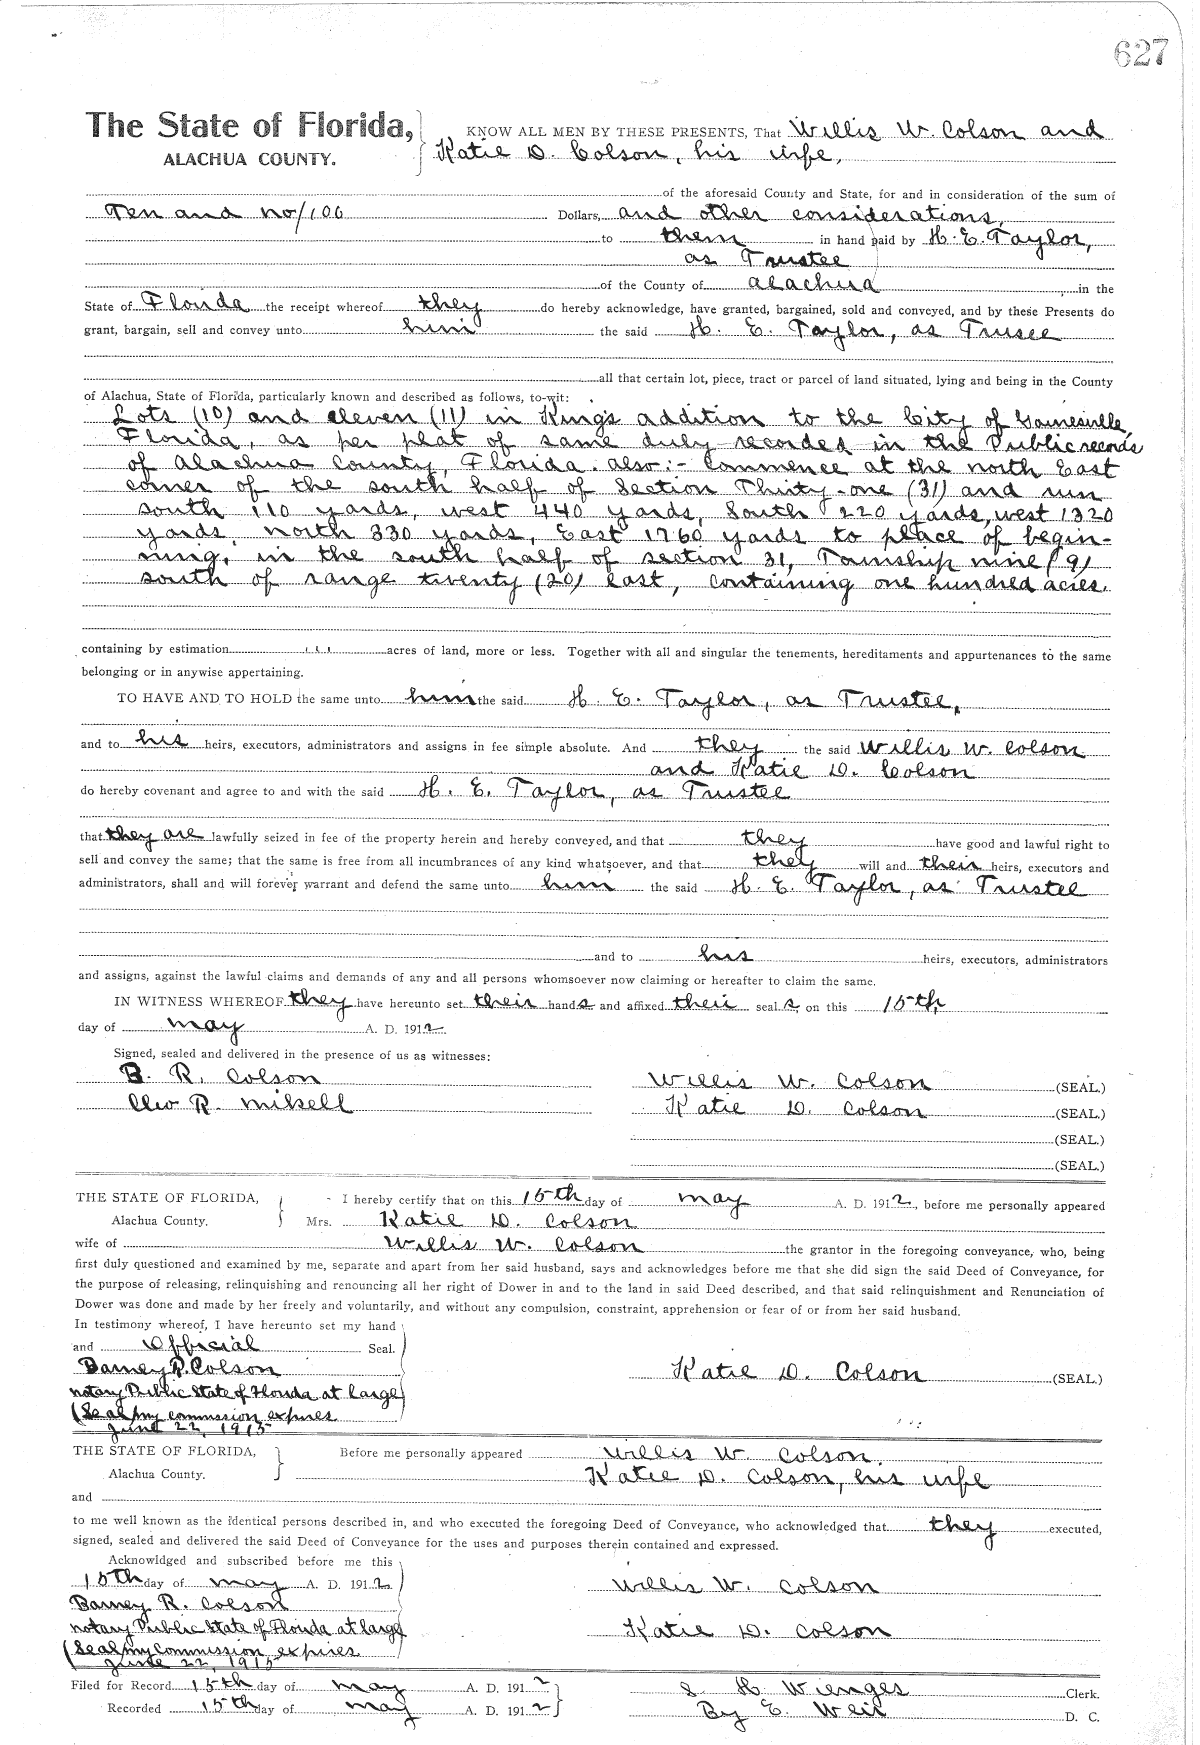 627
The State of Florida,
ALACHUA COUNTY.
KNOW ALL MEN BY THESE PRESENTS, That Willis W. Colson and
Katie D. Colson, his wife,
of the aforesaid County and State, for and in consideration of the sum of
Ten and no/100 Dollars, and other considerations,
to them in hand paid by H. E. Taylor,
as Trustee
of the County of Alachua in the
State of Florida the receipt whereof they do hereby acknowledge, have granted, bargained, sold and conveyed, and by these Presents do
grant, bargain, sell and convey unto him the said H. E. Taylor, as Trusee
all that certain lot, piece, tract or parcel of land situated, lying and being in the County
of Alachua, State of Florida, particularly known and described as follows, to-wit:
Lots (10) and eleven (11) in Kings addition to the City of Gainesville,
Florida, as per plat of same duly recorded in the Public records
of Alachua County, Florida. also:- Commence at the north East
corner of the south half of Section Thirty-one (31) and run
south 110 yards, west 440 yards, South 220 yards, west 1320
yards, north 330 yards, East 1760 yards to place of begin-
ning, in the south half of section 31, Township nine (9)
south of range twenty (20) East, containing one hundred acres.
containing by estimation acres of land, more or less. Together with all and singular the tenements, hereditaments and appurtenances to the same
belonging or in anywise appertaining.
TO HAVE AND TO HOLD the same unto him the said H. E. Taylor, as Trustee,
and to his heirs, executors, administrators and assigns in fee simple absolute. And they the said Willis W. Colson
and Katie D. Colson
do hereby covenant and agree to and with the said H. E. Taylor, as Trustee
that they are lawfully seized in fee of the property herein and hereby conveyed, and that they have good and lawful right to
sell and convey the same; that the same is free from all incumbrances of any kind whatsoever, and that they will and their heirs, executors and
administrators, shall and will forever warrant and defend the same unto him the said H. E. Taylor, as Trustee
and to his heirs, executors, administrators
and assigns, against the lawful claims and demands of any and all persons whomsoever now claiming or hereafter to claim the same.
IN WITNESS WHEREOF they have hereunto set their hands and affixed their seals, on this 15th,
day of May A. D. 1912.
Signed, sealed and delivered in the presence of us as witnesses:
B. R. Colson Willis W. Colson (SEAL.)
Cleo R. Mikell Katie D. Colson (SEAL.)
(SEAL.)
(SEAL.)
THE STATE OF FLORIDA, I hereby certify that on this 15th day of May A. D. 1912, before me personally appeared
Alachua County. Mrs. Katie D. Colson
wife of Willis W. Colson the grantor in the foregoing conveyance, who, being
first duly questioned and examined by me, separate and apart from her said husband, says and acknowledges before me that she did sign the said Deed of Conveyance, for
the purpose of releasing, relinquishing and renouncing all her right of Dower in and to the land in said Deed described, and that said relinquishment and Renunciation of
Dower was done and made by her freely and voluntarily, and without any compulsion, constraint, apprehension or fear of or from her said husband.
In testimony whereof, I have hereunto set my hand
and Official Seal.
Barney R. Colson Katie D. Colson (SEAL.)
Notary Public State of Florida at large
(Seal) my commission expires
June 22, 1915
THE STATE OF FLORIDA, Before me personally appeared Willis W. Colson,
Alachua County. Katie D. Colson, his wife
and
to me well known as the identical persons described in, and who executed the foregoing Deed of Conveyance, who acknowledged that they executed,
signed, sealed and delivered the said Deed of Conveyance for the uses and purposes therein contained and expressed.
Acknowldged and subscribed before me this
15th day of May A. D. 1912 Willis W. Colson
Barney R. Colson
Notary Public State of Florida at large Katie D. Colson
(Seal) my Commission expires
June 22, 1915
Filed for Record 15th day of May A. D. 1912 S. H. Wienges Clerk.
Recorded 15th day of May A. D. 1912 By E. Weir D. C.